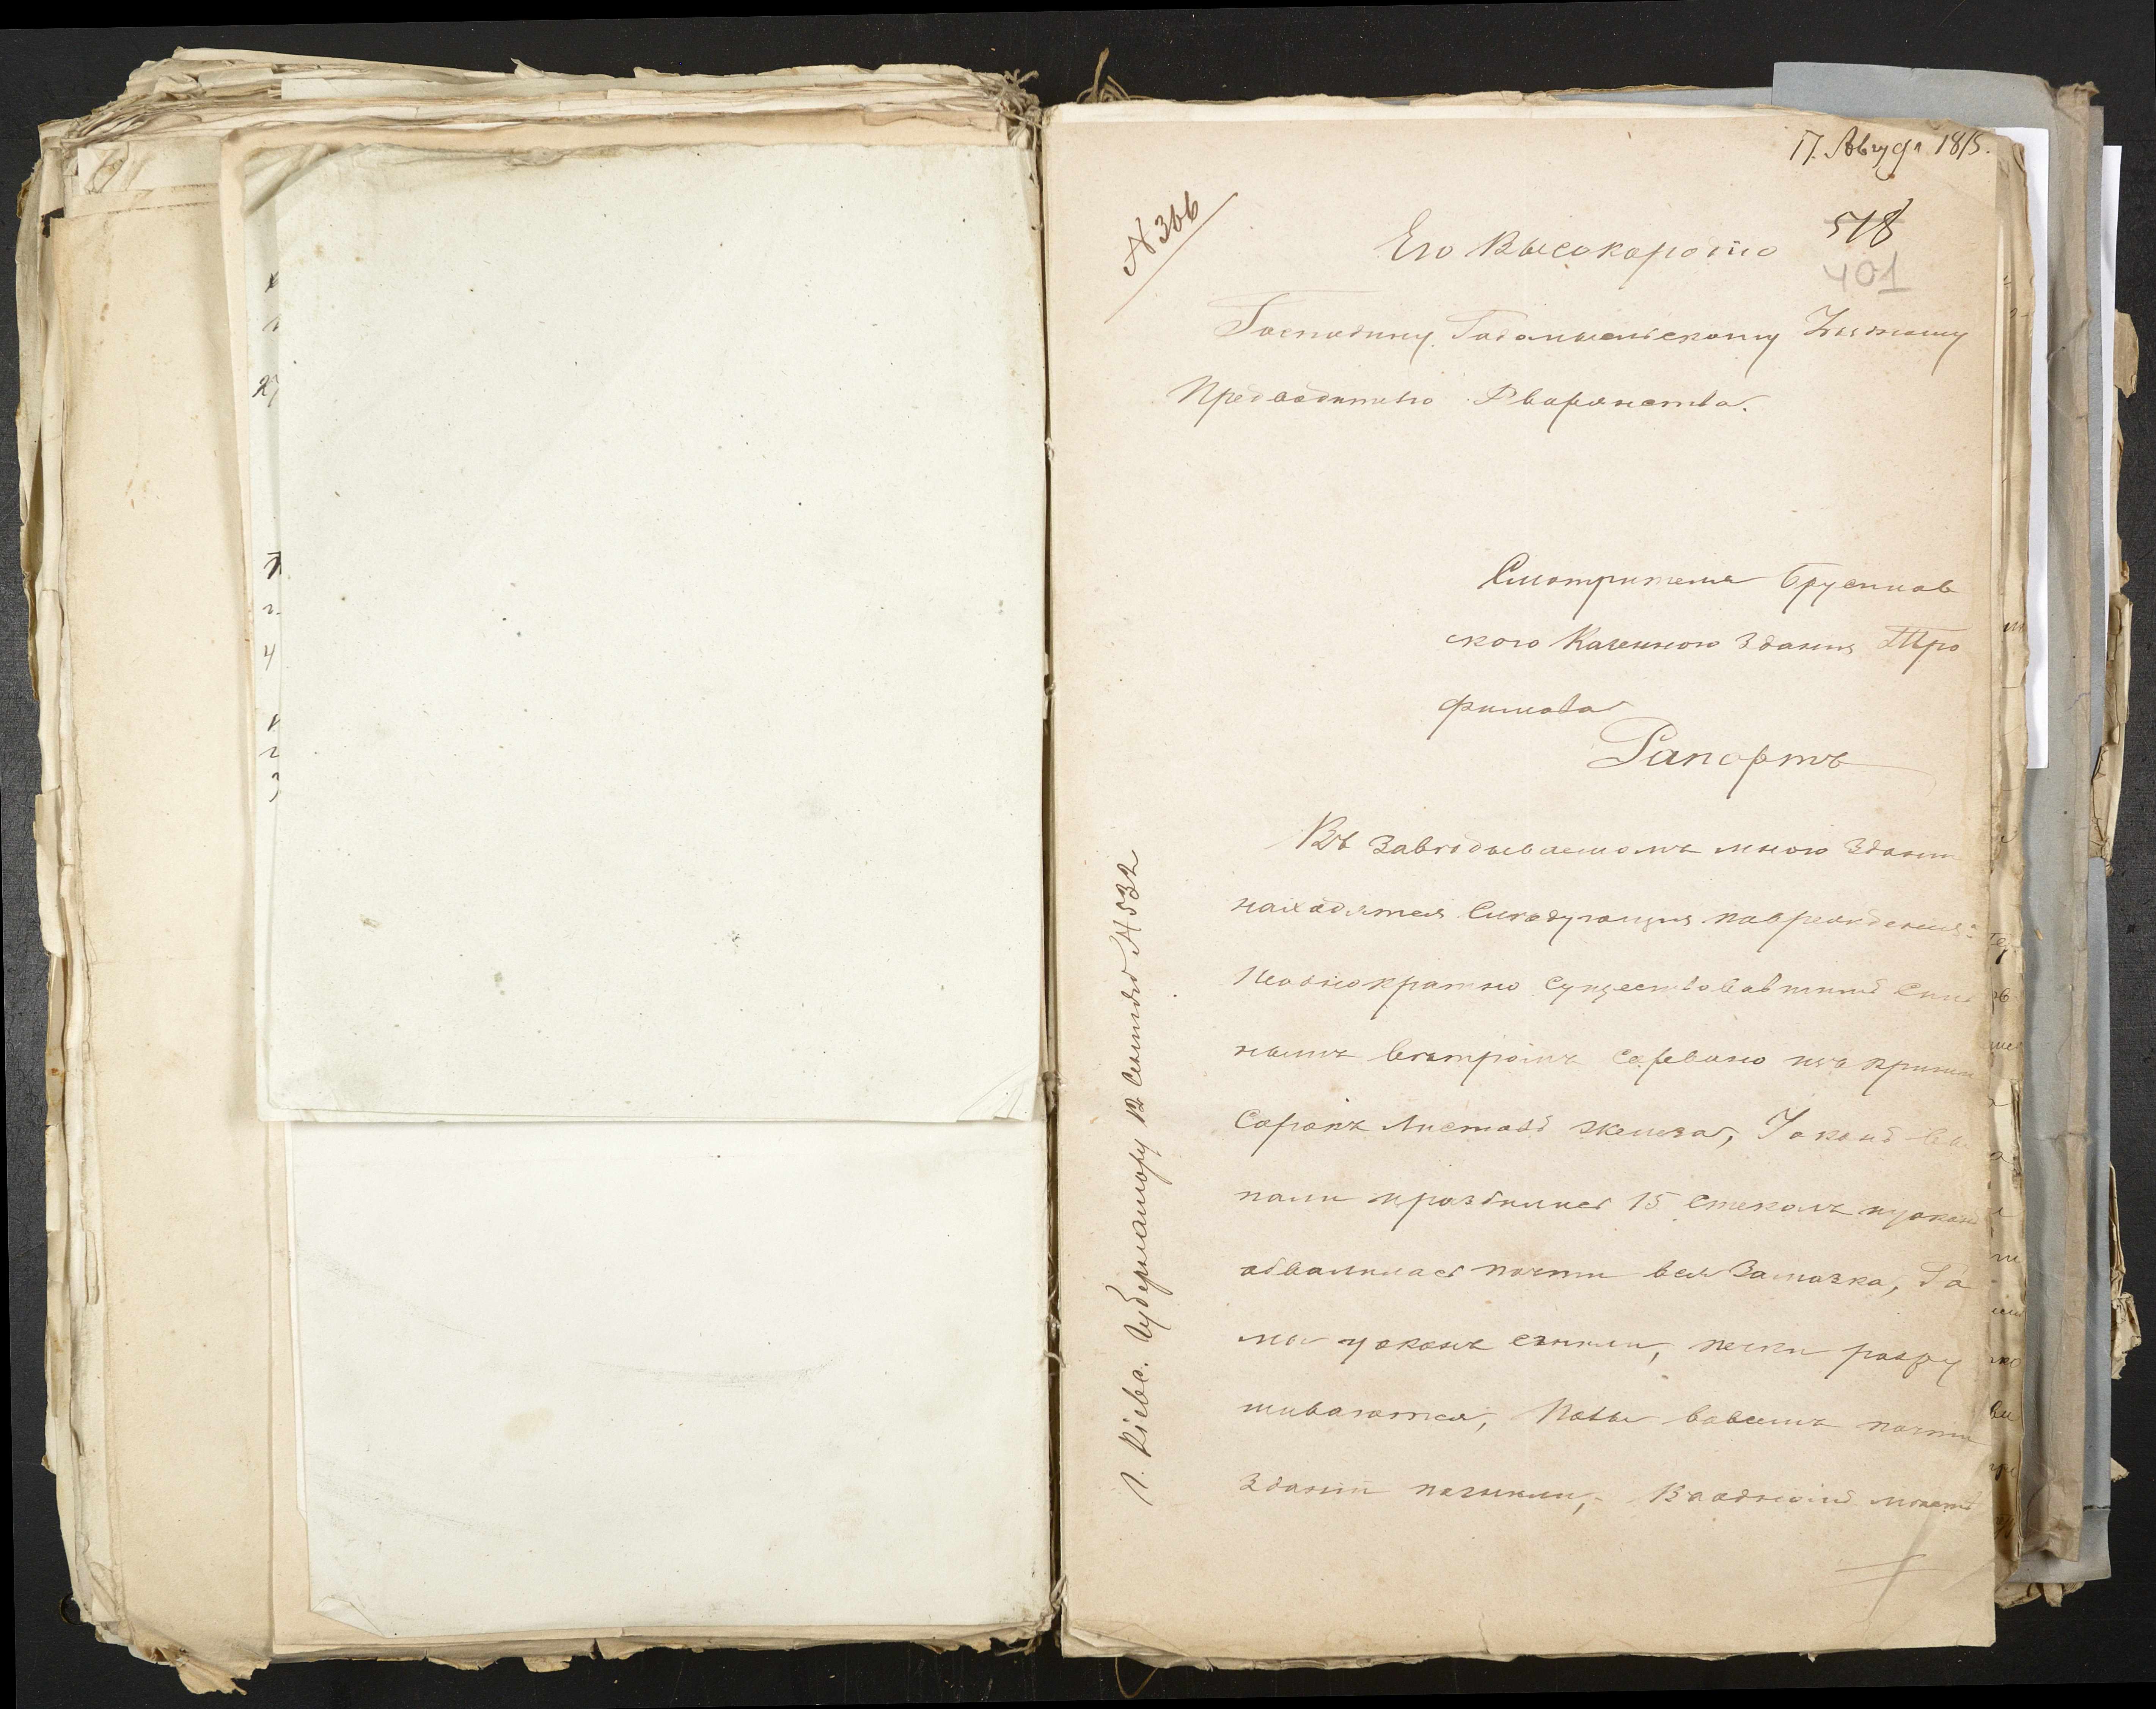 17. Авгус. 1875.
№ 366
518
401
Его Высокородію
Господину Радомысльскому Уѣздному
Предводителю Дворянства.
Смотрителя Брусилов
скаго Казеннаго Зданія Тро
фимова
Рапортъ
Въ Завѣдываемомъ мною Зданіи
находятся Слѣдующія поврежденія:
Неоднократно Существовавшимъ Силь
нымъ Вѣтромъ Сорвано изъ крыши
Сорокъ Листовъ Железа,
15 Стеколъ
обвалилась почти вся Замазка, Ра
мы уоконъ сгнили, печи разру
шиваются, Полы вовсемъ почти
Зданіи погнили,
Г. Кіевс. Губернатору 12 Сентября № 532